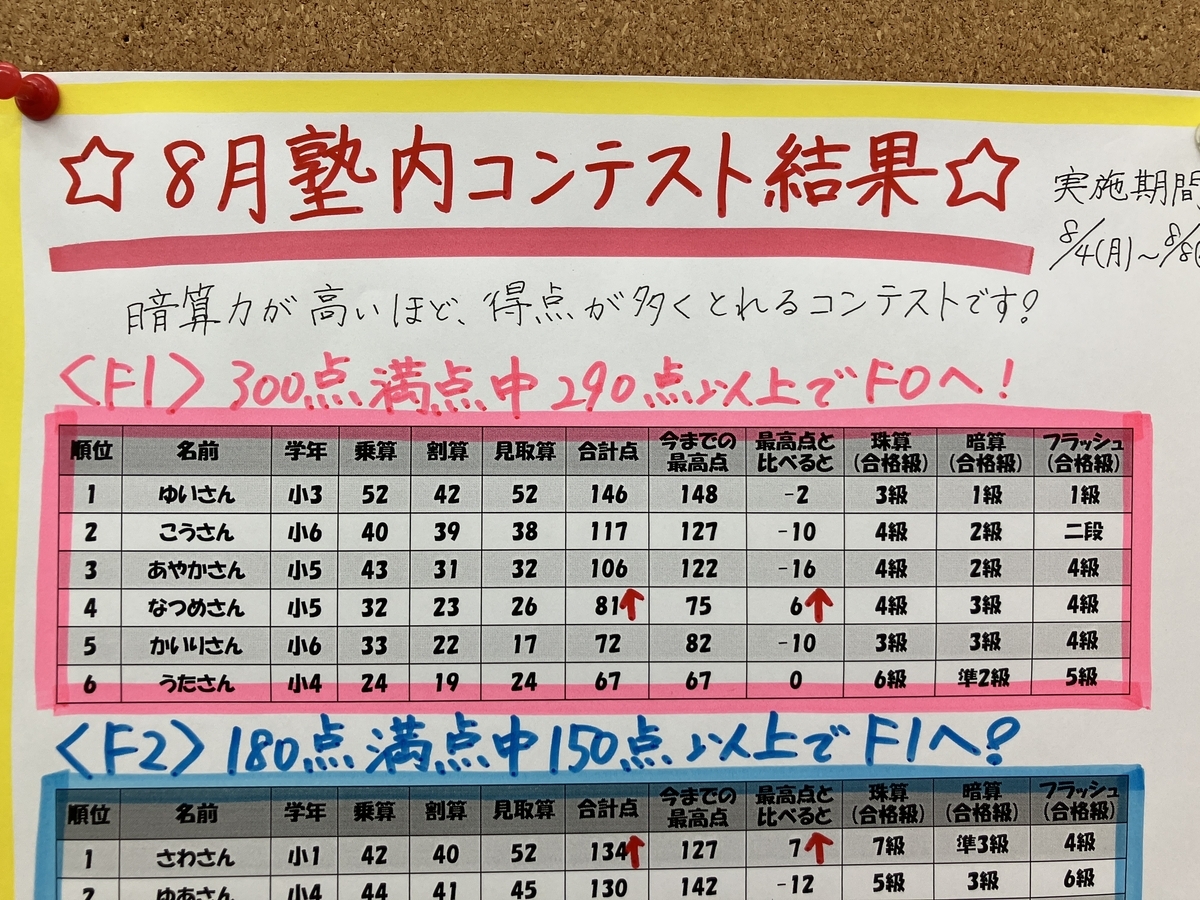 ☆8月塾内コンテスト結果☆
実施期間
8/4(月)~8/8(
暗算力が高いほど、得点が多くとれるコンテストです!
<F1>300点満点中290点以上でF0へ!
順位 名前 学年 乗算 割算 見取算 合計点 今までの最高点 最高点と比べると 珠算(合格級) 暗算(合格級) フラッシュ(合格級)
1 ゆいさん 小3 52 42 52 146 148 -2 3級 1級 1級
2 こうさん 小6 40 39 38 117 127 -10 4級 2級 二段
3 あやかさん 小5 43 31 32 106 122 -16 4級 2級 4級
4 なつめさん 小5 32 23 26 81↑ 75 6↑ 4級 3級 4級
5 かいりさん 小6 33 22 17 72 82 -10 3級 3級 4級
6 うたさん 小4 24 19 24 67 67 0 6級 準2級 5級
<F2>180点満点中150点以上でF1へ?
順位 名前 学年 乗算 割算 見取算 合計点 今までの最高点 最高点と比べると 珠算(合格級) 暗算(合格級) フラッシュ(合格級)
1 さわさん 小1 42 40 52 134↑ 127 7↑ 7級 準3級 4級
2 ゆあさん 小4 44 41 45 130 142 -12 5級 3級 6級